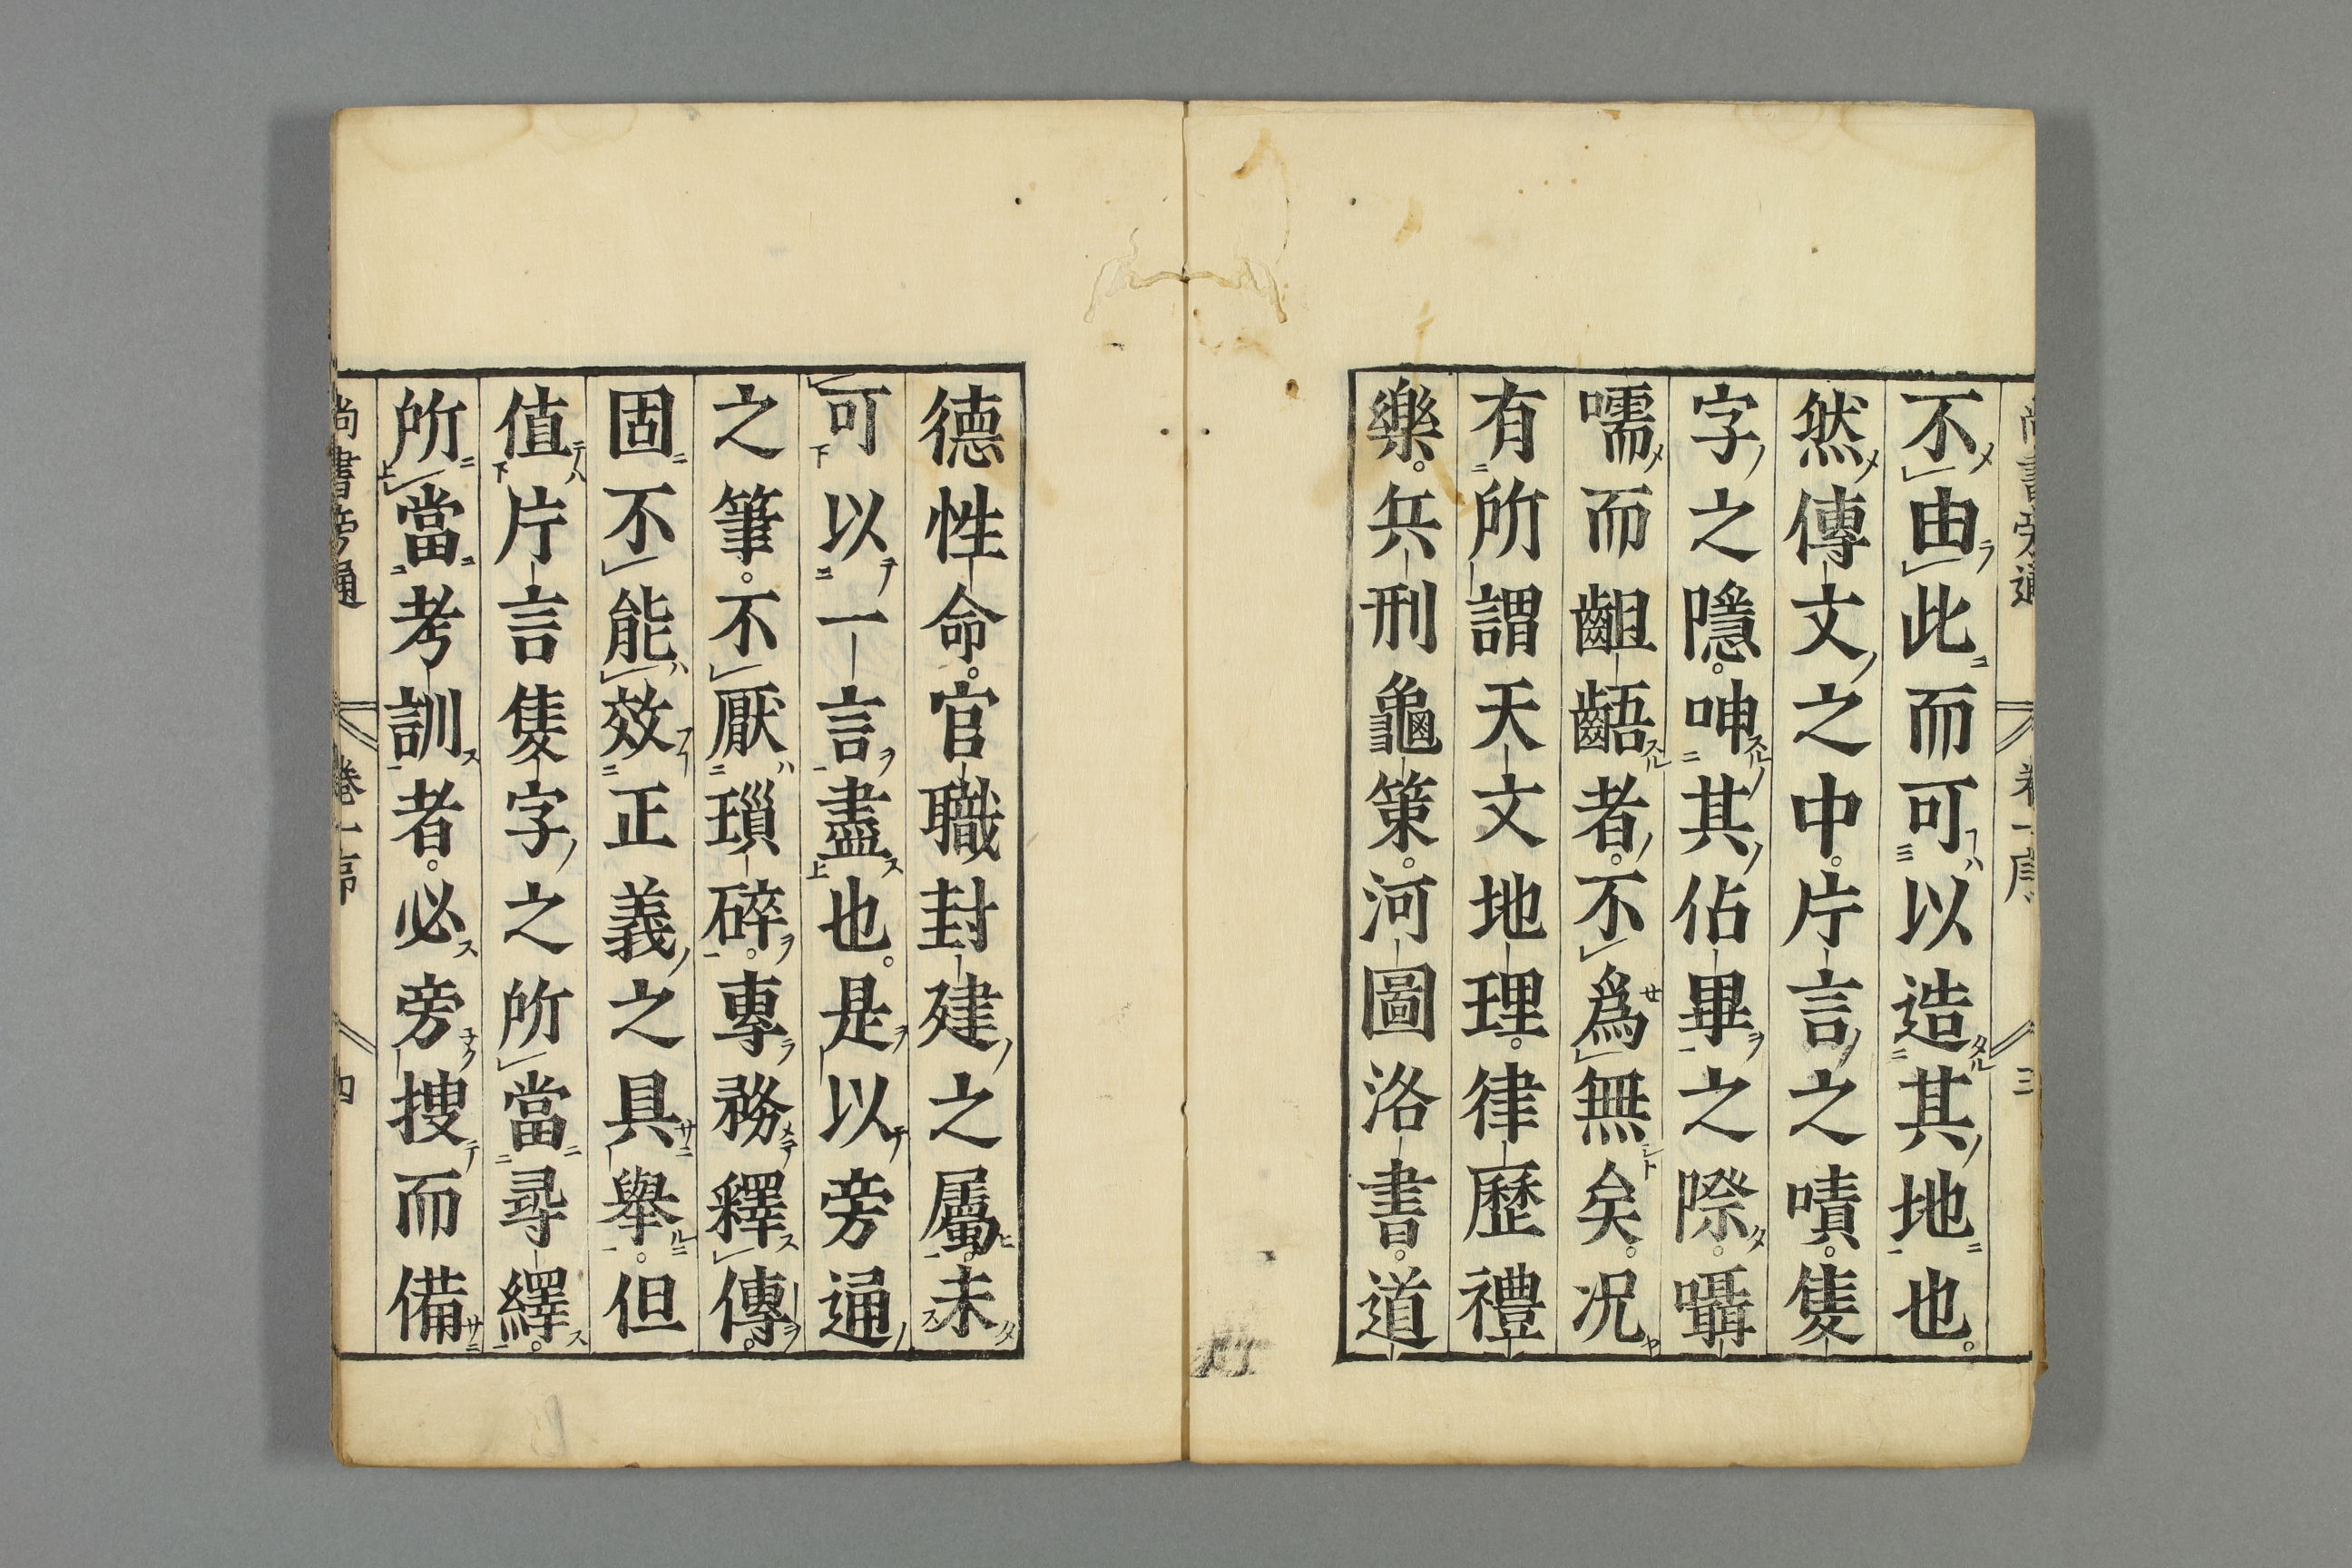 尚書旁通 卷一序 三
不由此而可以造其地也。
然傳文之中。片言之嘖。隻
字之隱。呻其佔畢之際。囁
嚅而齟齬者。不爲無矣。况
有所謂天文地理。律歷禮
樂。兵刑龜策。河圖洛書。道
德性命。官職封建之屬。未
可以一言盡也。是以旁通
之筆。不厭瑣碎。專務釋傳。
固不能效正義之具舉。但
值片言隻字之所當尋繹。
所當考訓者。必旁搜而備
尚書旁通 卷一序 四